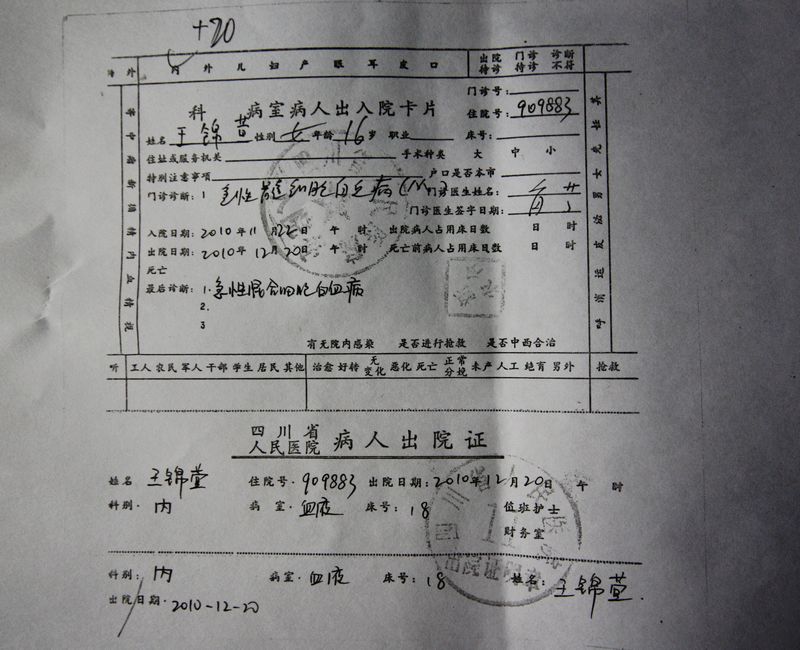 +20
外 内 外 儿 妇 产 眼 耳 皮 口 出院待诊 门诊待诊 诊断不符
门诊号:
科 病室病人出入院卡片 住院号: 909883
姓名 王锦 性别 女 年龄 16 岁 职业 床号:
住址或服务机关 手术种类 大 中 小
特别注意事项 户口是否本市
门诊诊断: 1 急性 细胞白血病 门诊医生姓名:
门诊医生签字日期:
入院日期: 2010年11月22日 午 时 出院病人占用床日数 日 时
出院日期: 2010年12月20日 午 时 死亡前病人占用床日数 日 时
死亡
最后诊断: 1. 急性混合细胞白血病
2.
3
有无院内感染 是否进行抢救 是否中西合治
听 工人 农民 军人 干部 学生 居民 其他 治愈 好转 无变化 恶化 死亡 正常分娩 未产 人工 绝育 另外 抢救
四川省人民医院 病人出院证
姓名 王锦萱 住院号· 909883 出院日期: 2010年12月20日 午 时
科别· 内 病室· 血液 床号: 18 值班护士
财务室
科别: 内 病室· 血液 床号: 18 姓名: 王锦萱
出院日期· 2010-12-20